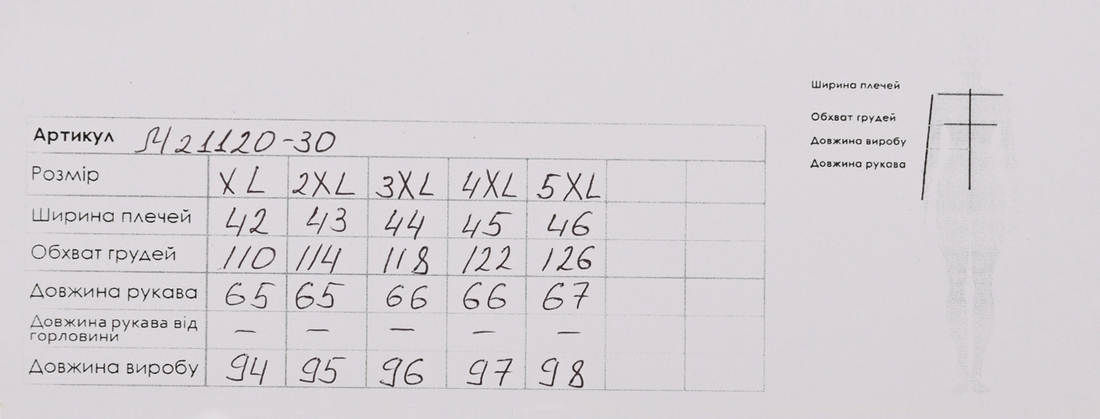 Артикул М21120-30
Розмір XL 2XL 3XL 4XL 5XL
Ширина плечей 42 43 44 45 46
Обхват грудей 110 114 118 122 126
Довжина рукава 65 65 66 66 67
Довжина рукава від
горловини — — — — —
Довжина виробу 94 95 96 97 98
Ширина плечей
Обхват грудей
Довжина виробу
Довжина рукава